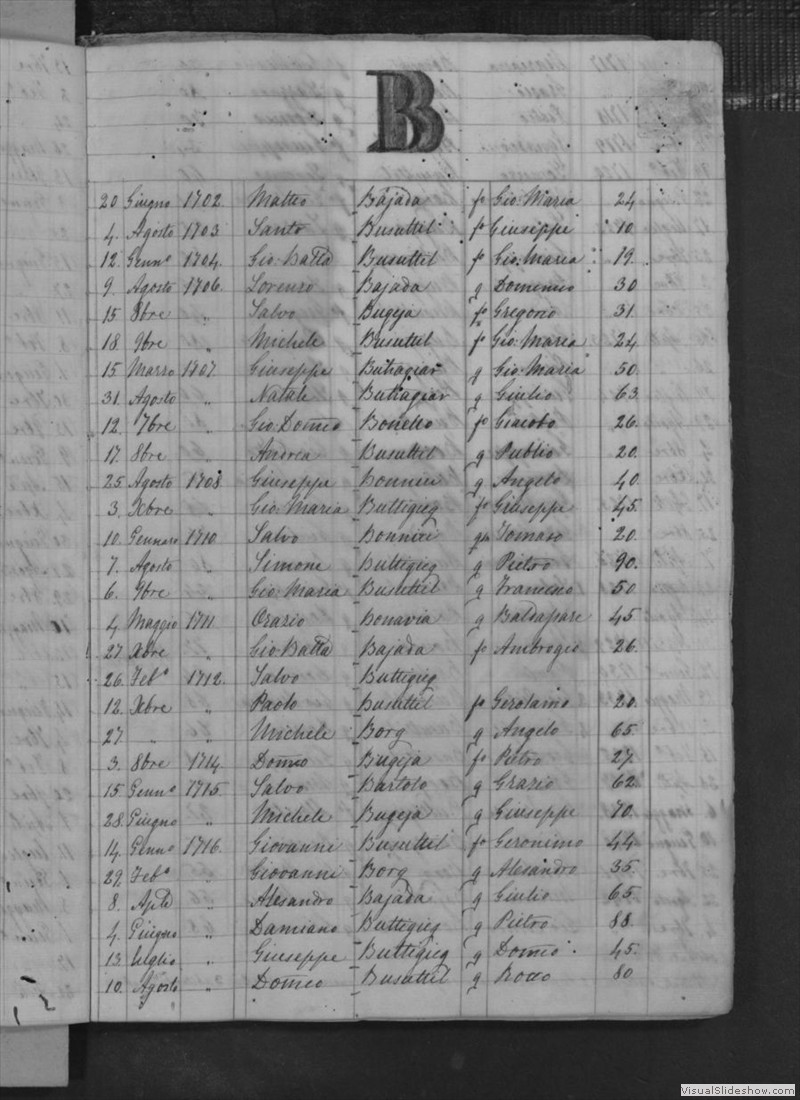 B
20 Giugno 1702 Matteo Bajada fo Gio: Maria 24
4. Agosto 1703 Santo Busuttil fo Giuseppe 10
12. Genno 1704 Gio: Batta Busuttil fo Gio: Maria 19.
9. Agosto 1706 Lorenzo Bajada q Domenico 30
15 8bre " Salvo Bugeja fo Gregorio 31.
18. 9bre " Michele Busuttil fo Gio: Maria 24
15 Marzo 1707. Giuseppe Buttagiar q Gio: Maria 50.
31. Agosto " Natale Buttagiar q Giulio 63
12. 7bre " Gio: Domco Bonello fo Giacobo 26.
17. 8bre " Andrea Busuttil q Publio 20.
25 Agosto 1708. Giuseppe Bonnici q Angelo 40
3. Xbre " Gio: Maria Buttigieg fo Giuseppe 45.
10. Gennaro 1710. Salvo Bonnici qm Tomaso 20.
7. Agosto " Simone Buttigieg q Pietro 90.
6. 9bre " Gio: Maria Busuttil q Francesco 50
4 Maggio 1711 Orazio Bonavia q Baldasare 45
27 Xbre " Gio: Batta Bajada fo Ambrogio 26.
26. Febo 1712. Salvo Buttigieg
12. Xbre " Paolo Busuttil fo Gerolamo 20.
27. " " Michele Borg q Angelo 65.
3. 8bre 1714 Domco Bugeja fo Pietro 27.
15 Genno 1715. Salvo Bartolo q Grazio 62
28. Giugno " Michele Bugeja q Giuseppe 70.
14. Genno 1716. Giovanni Busuttil fo Geronimo 44
29. Febo " Giovanni Borg q Alesandro 35.
8. Aple " Alesandro Bajada q Giulio 65
4. Giugno " Damiano Buttigieg q Pietro 88.
13. Luglio " Giuseppe Buttigieg q Domco 45.
10. Agosto " Domco Busuttil q Rocco 80
VisualSlideshow.com